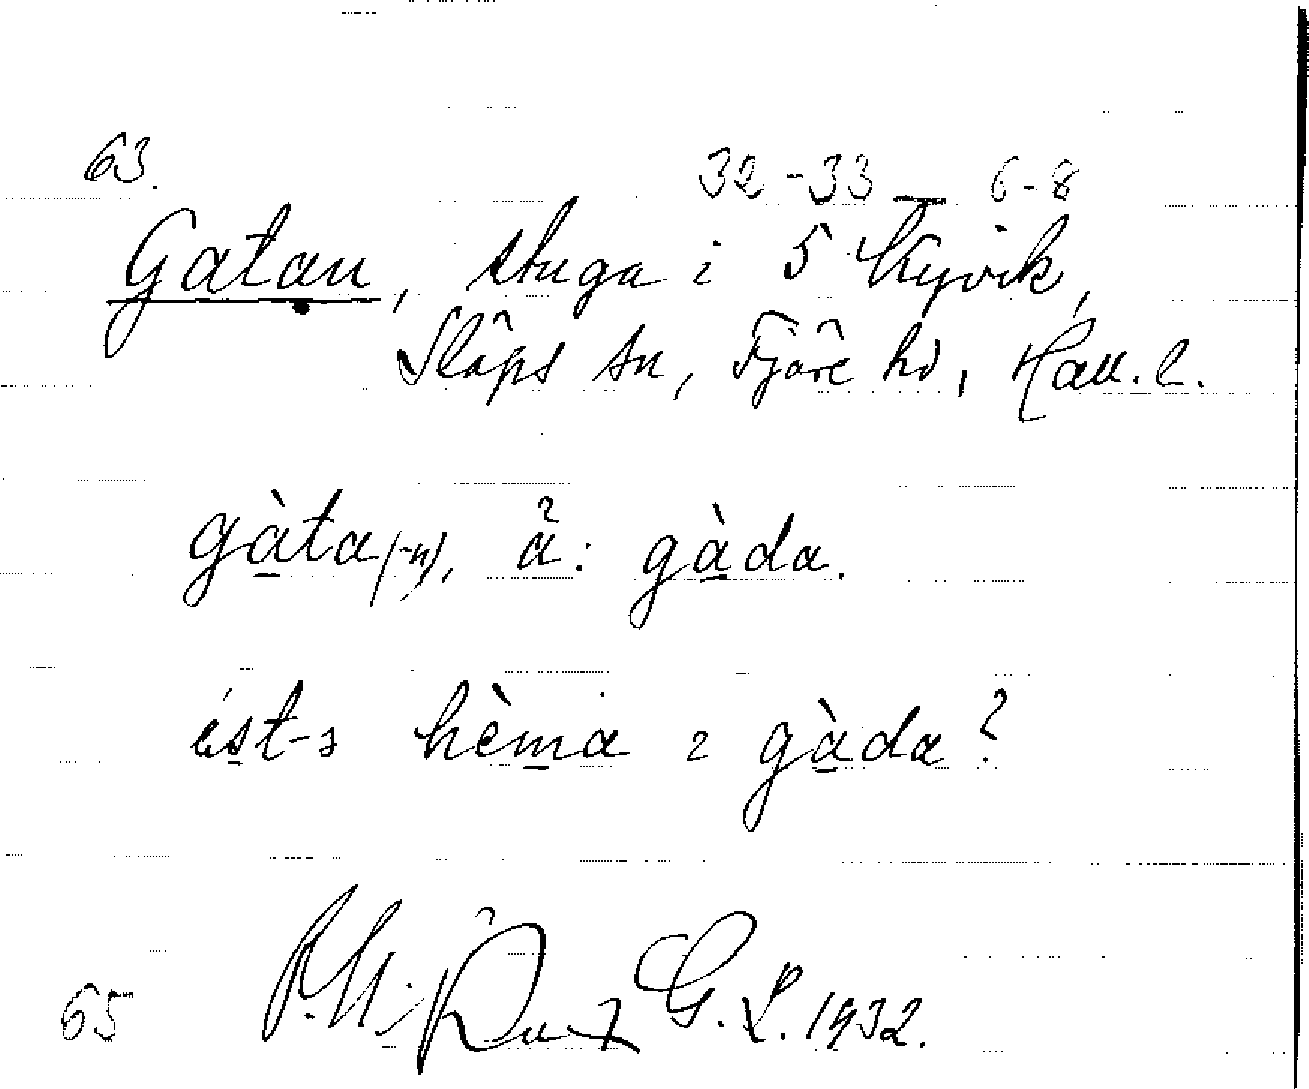 63.
32-33 — 6-8
Gatan, stuga i 5 Kyvik,
Släps sn, Fjäre hd, Hall. l.
gàta(-n), å̀: gàda.
ist-ɜ hèma ɪ gàda?
65 G. L. 1932.